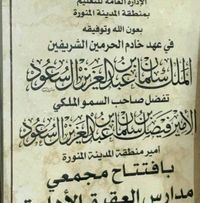 الإدارة العامة للتعليم
بمنطقة المدينة المنورة
بعون الله وتوفيقه
في عهد خادم الحرمين الشريفين
الملك سلمان بن عبد العزيز آل سعود
تفضل صاحب السمو الملكي
الأمير فيصل بن سلمان بن عبد العزيز آل سعود
أمير منطقة المدينة المنورة
بافتتاح مجمعي
مدارس العقيق الأهلية